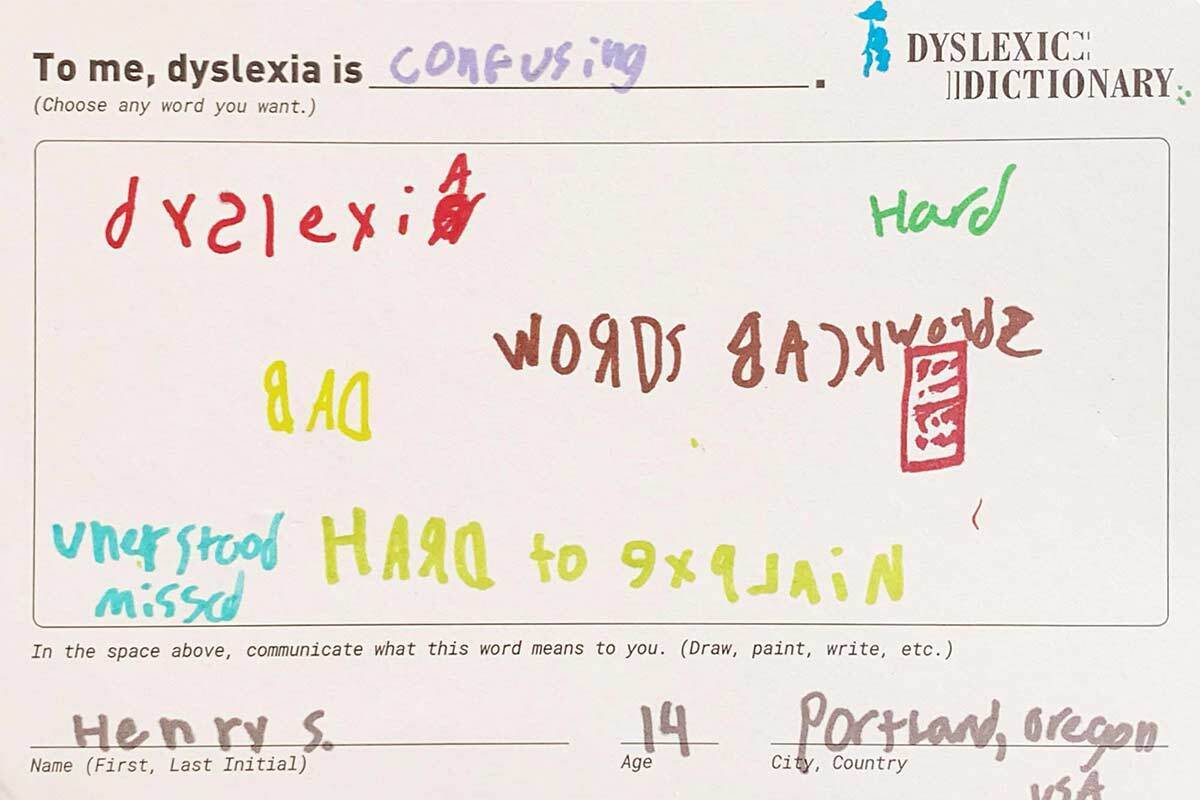 To me, dyslexia is confusing.
(Choose any word you want.)
DYSLEXIC
DICTIONARY
dyslexiA
Hard
WORDS BACKwords
BAD
unerstood
missed
HARD to explAiN
In the space above, communicate what this word means to you. (Draw, paint, write, etc.)
Henry S.
14
Portland, oregon
USA
Name (First, Last Initial)
Age
City, Country